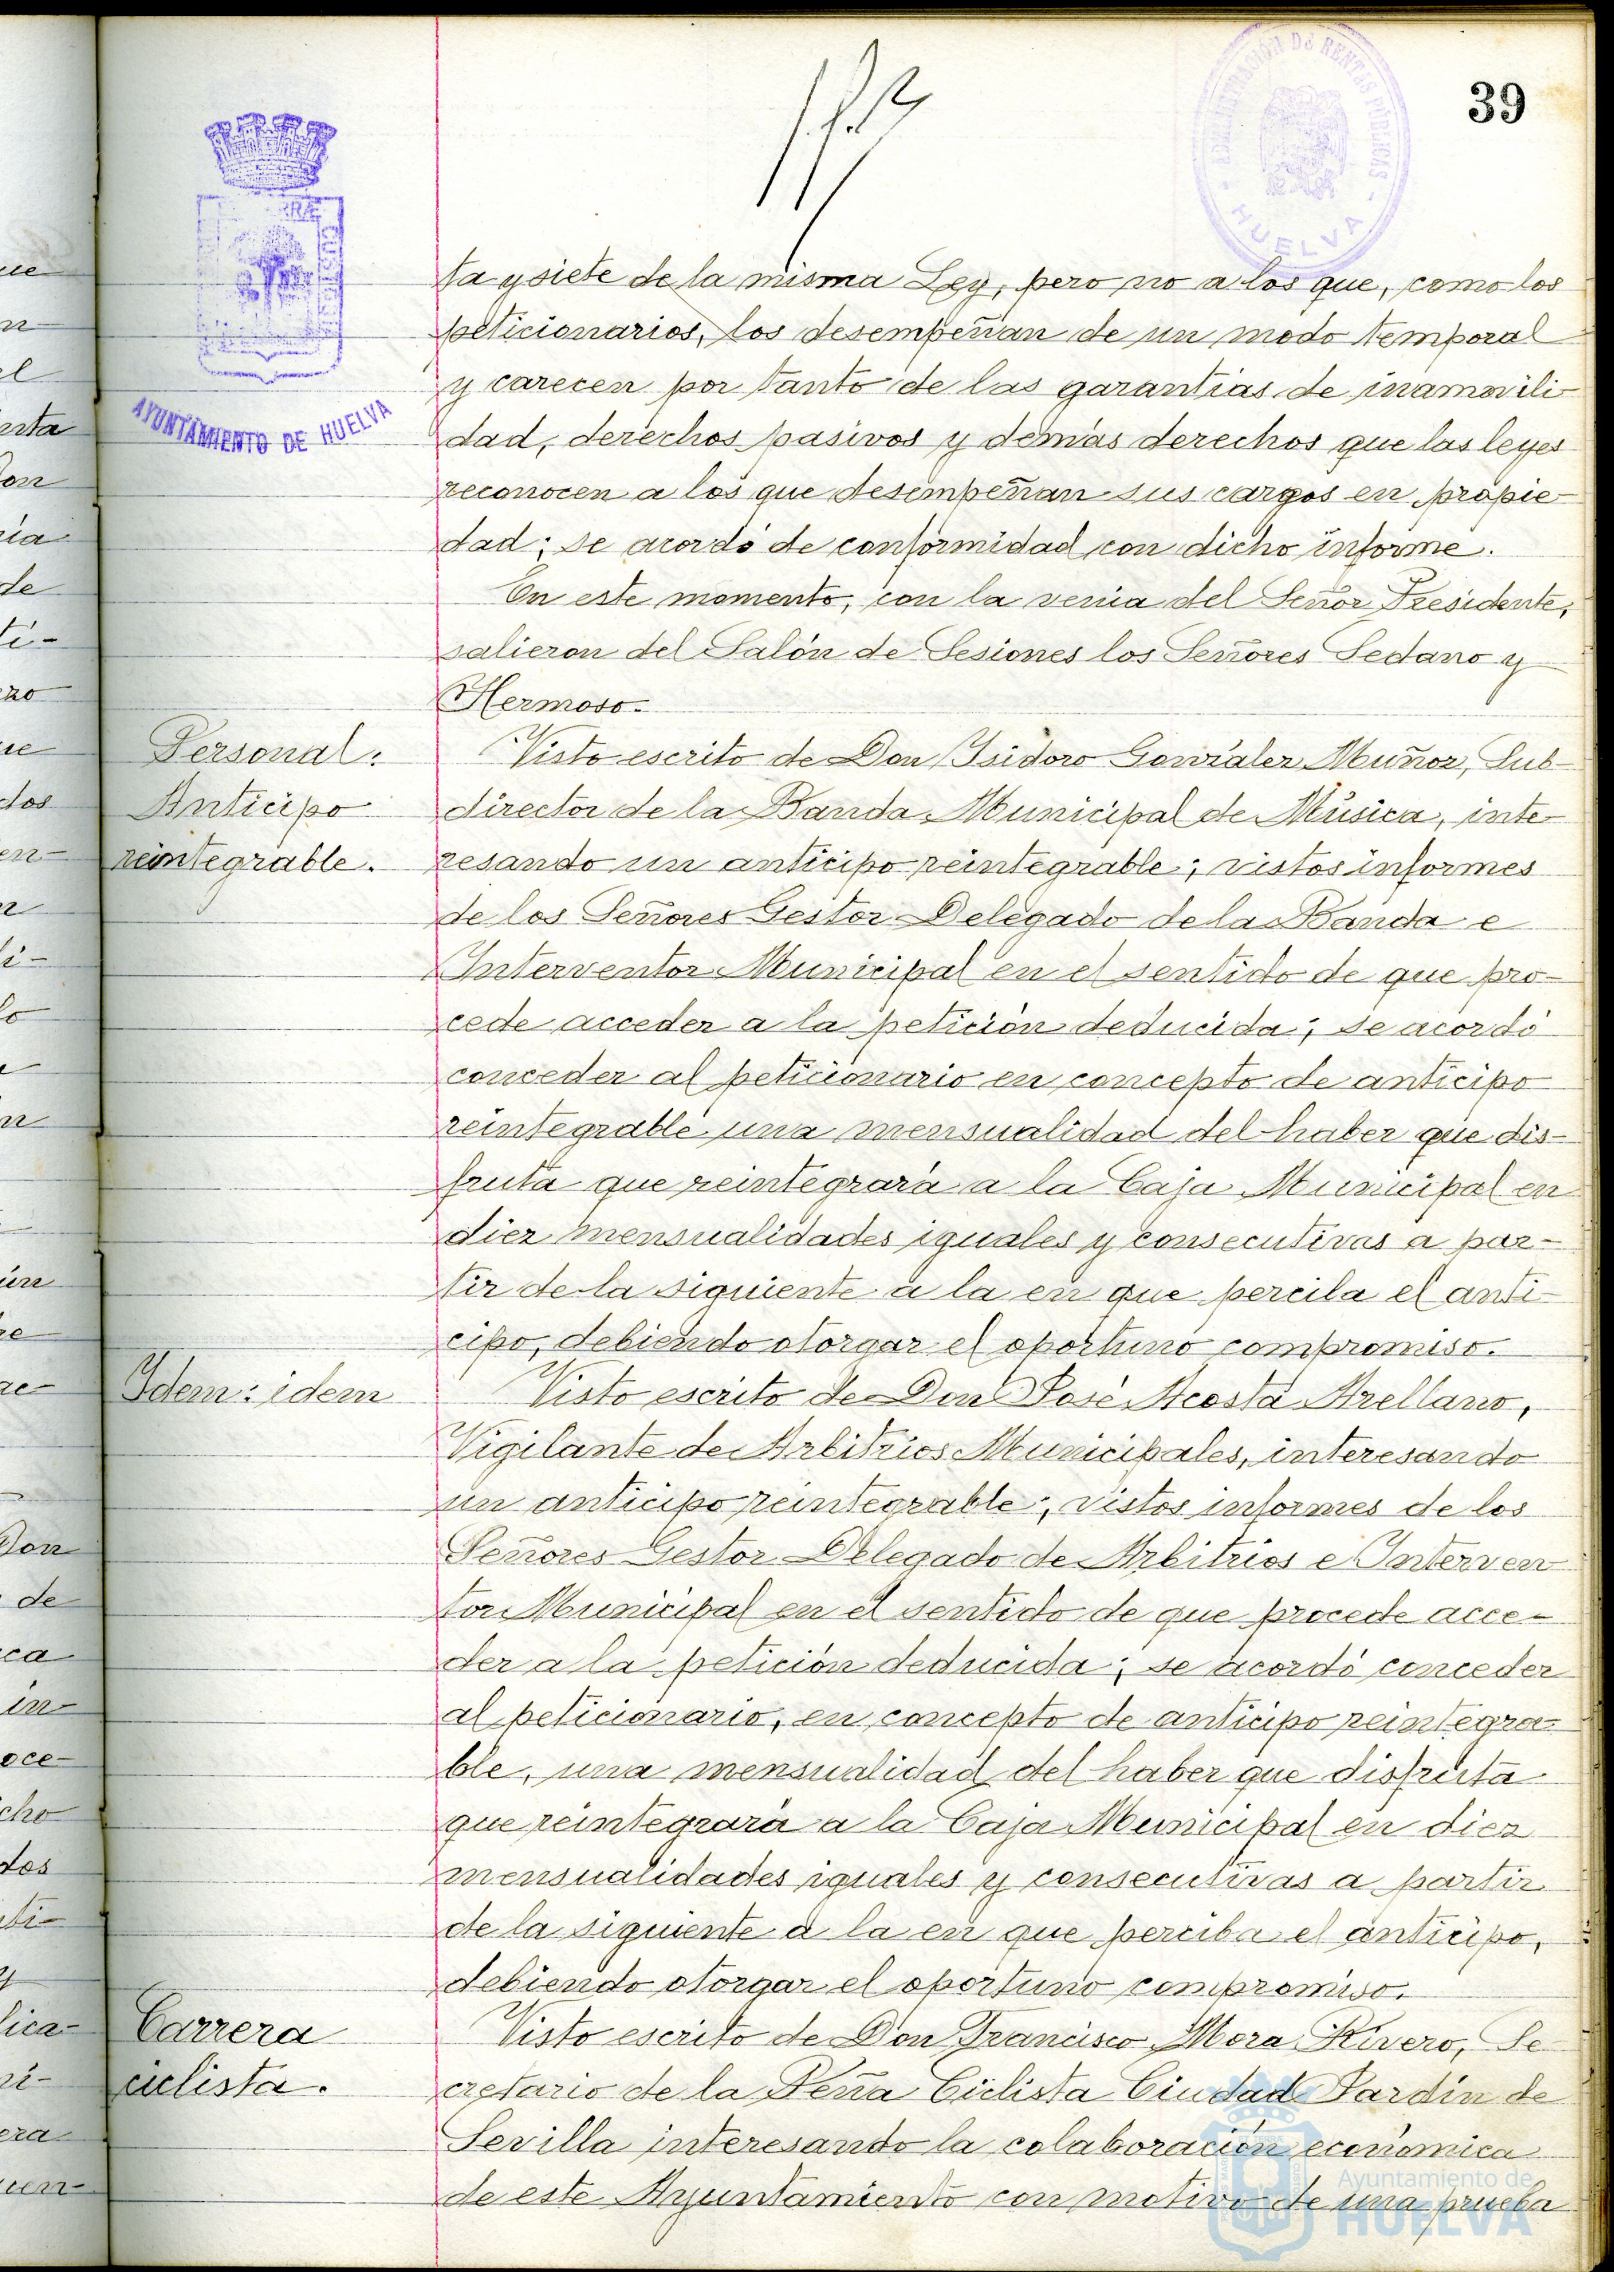 39
ADMINISTRACIÓN DE RENTAS PÚBLICAS
HUELVA
AYUNTAMIENTO DE HUELVA
ta y siete de la misma Ley, pero no a los que, como los
peticionarios, los desempeñan de un modo temporal
y carecen por tanto de las garantías de inamovili-
dad, derechos pasivos y demás derechos que las leyes
reconocen a los que desempeñan sus cargos en propie-
dad; se acordó de conformidad con dicho informe.
En este momento, con la venia del Señor Presidente,
salieron del Salón de Sesiones los Señores Sedano y
Hermoso.
Personal:
Anticipo
reintegrable.
Visto escrito de Don Isidoro González Muñoz, Sub-
director de la Banda Municipal de Música, inte-
resando un anticipo reintegrable; vistos informes
de los Señores Gestor Delegado de la Banda e
Interventor Municipal en el sentido de que pro-
cede acceder a la petición deducida; se acordó
conceder al peticionario en concepto de anticipo
reintegrable una mensualidad del haber que dis-
fruta que reintegrará a la Caja Municipal en
diez mensualidades iguales y consecutivas a par-
tir de la siguiente a la en que perciba el anti-
cipo, debiendo otorgar el oportuno compromiso.
Idem: idem
Visto escrito de Don José Acosta Arellano,
Vigilante de Arbitrios Municipales, interesando
un anticipo reintegrable; vistos informes de los
Señores Gestor Delegado de Arbitrios e Interven
tor Municipal en el sentido de que procede acce-
der a la petición deducida; se acordó conceder
al peticionario, en concepto de anticipo reintegra-
ble, una mensualidad del haber que disfruta
que reintegrará a la Caja Municipal en diez
mensualidades iguales y consecutivas a partir
de la siguiente a la en que perciba el anticipo,
debiendo otorgar el oportuno compromiso.
Carrera
ciclista.
Visto escrito de Don Francisco Mora Rivero, Se-
cretario de la Peña Ciclista Ciudad Jardín de
Sevilla interesando la colaboración económica
de este Ayuntamiento con motivo de una prueba
Ayuntamiento de
HUELVA